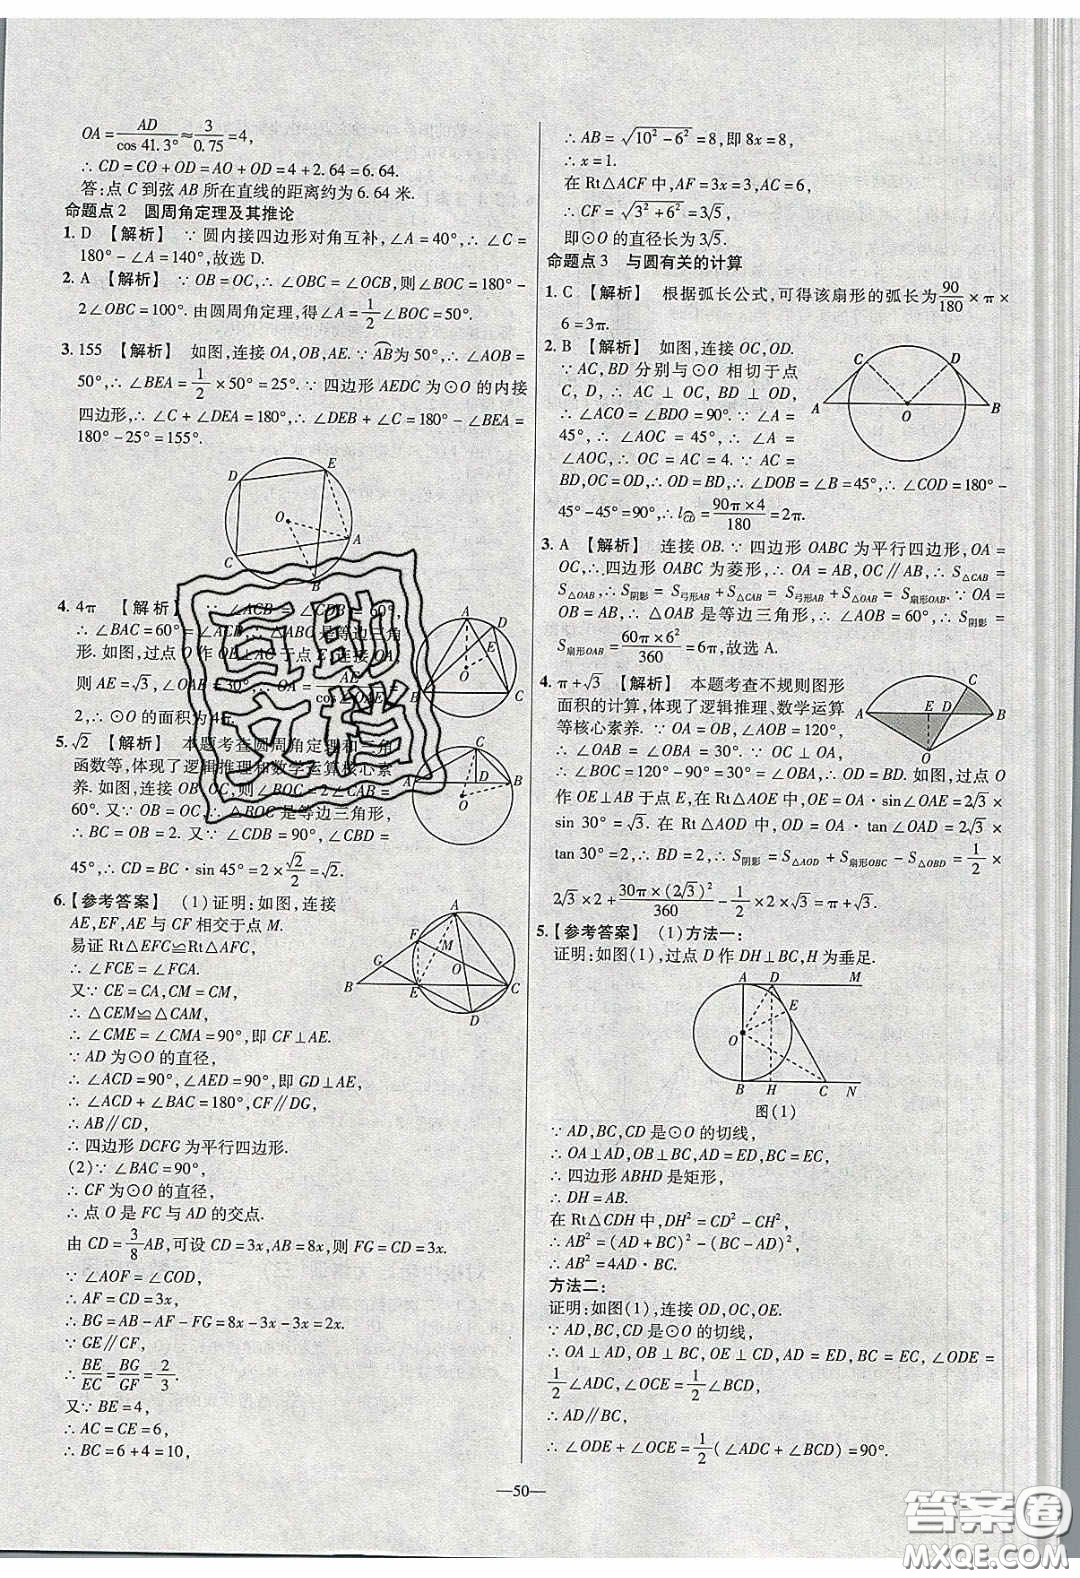 OA=AD/cos 41.3°≈3/0.75=4,
∴ CD=CO+OD=AO+OD=4+2.64=6.64.
答:点 C 到弦 AB 所在直线的距离约为 6.64 米.
命题点 2 圆周角定理及其推论
1. D 【解析】 ∵ 圆内接四边形对角互补,∠A=40°,∴ ∠C=
180°-∠A=140°,故选 D.
2. A 【解析】 ∵ OB=OC,∴ ∠OBC=∠OCB,则∠BOC=180°-
2×40°=100°. 由圆周角定理,得∠A=1/2∠BOC=50°.
3. 155 【解析】 如图,连接 OA,OB,AE. ∵ AB为 50°,∴ ∠AOB=
50°,∴ ∠BEA=1/2×50°=25°. ∵ 四边形 AEDC 为⊙O 的内接
四边形,∴ ∠C+∠DEA=180°,∴ ∠DEB+∠C=180°-∠BEA=
180°-25°=155°.
D E O A C B
4. 4π 【解析】 ∵ ∠ACB=∠CDB=60°,
∴ ∠BAC=60°=∠ACB,∴ △ABC 是等边三角
形. 如图,过点 O 作 OE⊥AC 于点 E,连接 OA,
则 AE=√3,∠OAE=30°,∴ OA=
2,∴ ⊙O 的面积为 4π.
A D E O B C
5. √2 【解析】 本题考查圆周角定理和三角
函数等,体现了逻辑推理和数学运算核心素
养. 如图,连接 OB,OC,则∠BOC=2∠CAB=
60°. 又∵ OB=OC,∴ △OBC 是等边三角形,
∴ BC=OB=2. 又∵ ∠CDB=90°,∠CBD=
45°,∴ CD=BC·sin 45°=2×√2/2=√2.
C A D B O
6. 【参考答案】 (1)证明:如图,连接
AE,EF,AE 与 CF 相交于点 M.
易证 Rt△EFC≌Rt△AFC,
∴ ∠FCE=∠FCA.
又∵ CE=CA,CM=CM,
∴ △CEM≌△CAM,
∴ ∠CME=∠CMA=90°,即 CF⊥AE.
∵ AD 为⊙O 的直径,
∴ ∠ACD=90°,∠AED=90°,即 GD⊥AE,
∴ ∠ACD+∠BAC=180°,CF∥DG,
∴ AB∥CD,
∴ 四边形 DCFG 为平行四边形.
A F M O G B E C D
(2)∵ ∠BAC=90°,
∴ CF 为⊙O 的直径,
∴ 点 O 是 FC 与 AD 的交点.
由 CD=3/8AB,可设 CD=3x,AB=8x,则 FG=CD=3x.
∵ ∠AOF=∠COD,
∴ AF=CD=3x,
∴ BG=AB-AF-FG=8x-3x-3x=2x.
∵ GE∥CF,
∴ BE/EC=BG/GF=2/3.
又∵ BE=4,
∴ AC=CE=6,
∴ BC=6+4=10,
∴ AB=√(10²-6²)=8,即 8x=8,
∴ x=1.
在 Rt△ACF 中,AF=3x=3,AC=6,
∴ CF=√(3²+6²)=3√5,
即⊙O 的直径长为 3√5.
命题点 3 与圆有关的计算
1. C 【解析】 根据弧长公式,可得该扇形的弧长为90/180×π×
6=3π.
2. B 【解析】 如图,连接 OC,OD.
∵ AC,BD 分别与⊙O 相切于点
C,D,∴ AC⊥OC,BD⊥OD,
∴ ∠ACO=∠BDO=90°. ∵ ∠A=
45°,∴ ∠AOC=45°,∴ ∠A=
∠AOC,∴ OC=AC=4. ∵ AC=
BD,OC=OD,∴ OD=BD,∴ ∠DOB=∠B=45°,∴ ∠COD=180°-
45°-45°=90°,∴ l CD=90π×4/180=2π.
C D A O B
3. A 【解析】 连接 OB. ∵ 四边形 OABC 为平行四边形,OA=
OC,∴ 四边形 OABC 为菱形,∴ OA=AB,OC∥AB,∴ S△CAB=
S△OAB,∴ S阴影=S弓形AB+S△CAB=S弓形AB+S△OAB=S扇形OAB. ∵ OA=
OB=AB,∴ △OAB 是等边三角形,∴ ∠AOB=60°,∴ S阴影=
S扇形OAB=60π×6²/360=6π,故选 A.
4. π+√3 【解析】 本题考查不规则图形
面积的计算,体现了逻辑推理、数学运算
等核心素养. ∵ OA=OB,∠AOB=120°,
∴ ∠OAB=∠OBA=30°. ∵ OC⊥OA,
∴ ∠BOC=120°-90°=30°=∠OBA,∴ OD=BD. 如图,过点 O
作 OE⊥AB 于点 E,在 Rt△AOE 中,OE=OA·sin∠OAE=2√3×
sin 30°=√3. 在 Rt△AOD 中,OD=OA·tan∠OAD=2√3×
tan 30°=2,∴ BD=2,∴ S阴影=S△AOD+S扇形OBC-S△OBD=1/2×
2√3×2+30π×(2√3)²/360-1/2×2×√3=π+√3.
C A E D B O
5. 【参考答案】 (1)方法一:
证明:如图(1),过点 D 作 DH⊥BC,H 为垂足.
A D M E O B H C N
图(1)
∵ AD,BC,CD 是⊙O 的切线,
∴ OA⊥AD,OB⊥BC,AD=ED,BC=EC,
∴ 四边形 ABHD 是矩形,
∴ DH=AB.
在 Rt△CDH 中,DH²=CD²-CH²,
∴ AB²=(AD+BC)²-(BC-AD)²,
∴ AB²=4AD·BC.
方法二:
证明:如图(1),连接 OD,OC,OE.
∵ AD,BC,CD 是⊙O 的切线,
∴ OA⊥AD,OB⊥BC,OE⊥CD,AD=ED,BC=EC,∠ODE=
1/2∠ADC,∠OCE=1/2∠BCD,
∴ AD∥BC,
∴ ∠ODE+∠OCE=1/2(∠ADC+∠BCD)=90°.
—50—
百助文档
答案圈
MXQE.COM